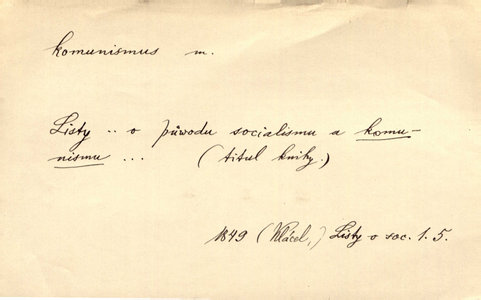 komunismus m.
Listy .. o původu socialismu a komu-
nismu ... (titul knihy.)
1849 (Klácel,) Listy o soc. 1. 5.